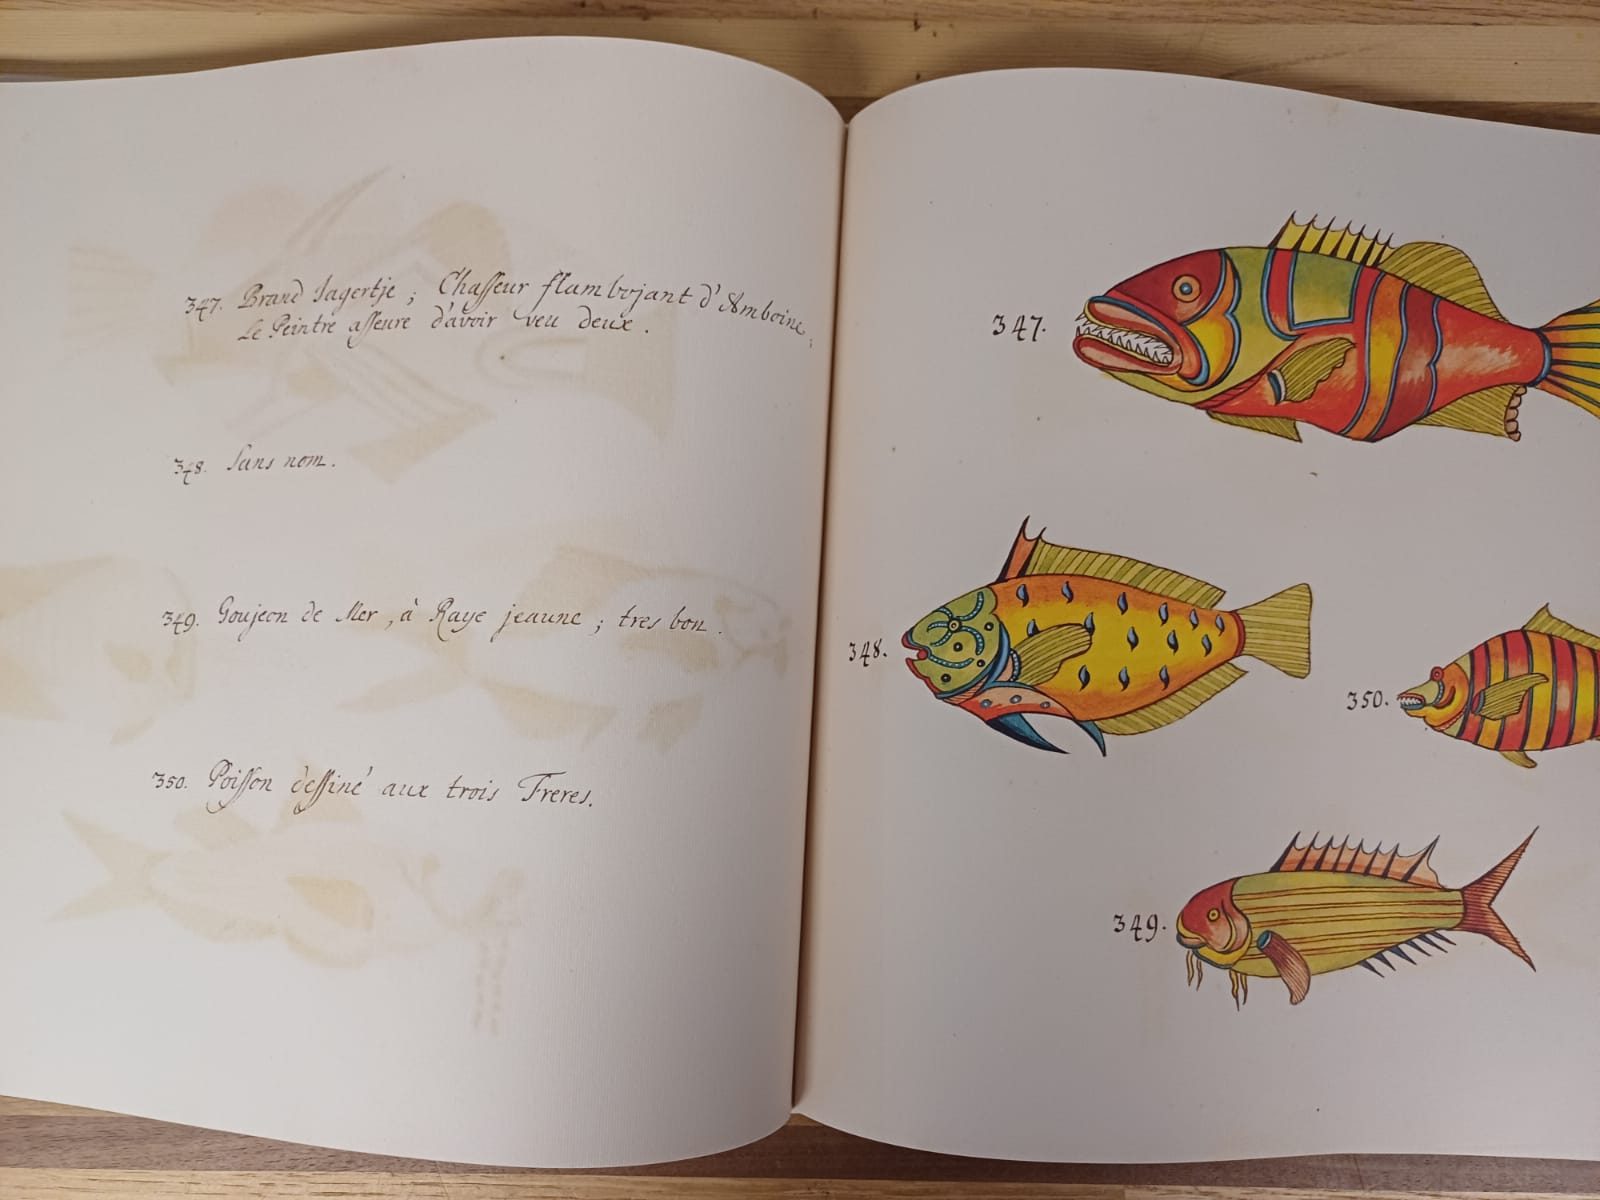 347. Brand Jagertje ; Chasseur flambojant d'Amboine,
Le Peintre asseure d'avoir veu deux .
348. Sans nom .
349. Goujeon de Mer , à Raye jeaune ; tres bon .
350. Poisson dessiné aux trois Freres.
347.
348.
350.
349.